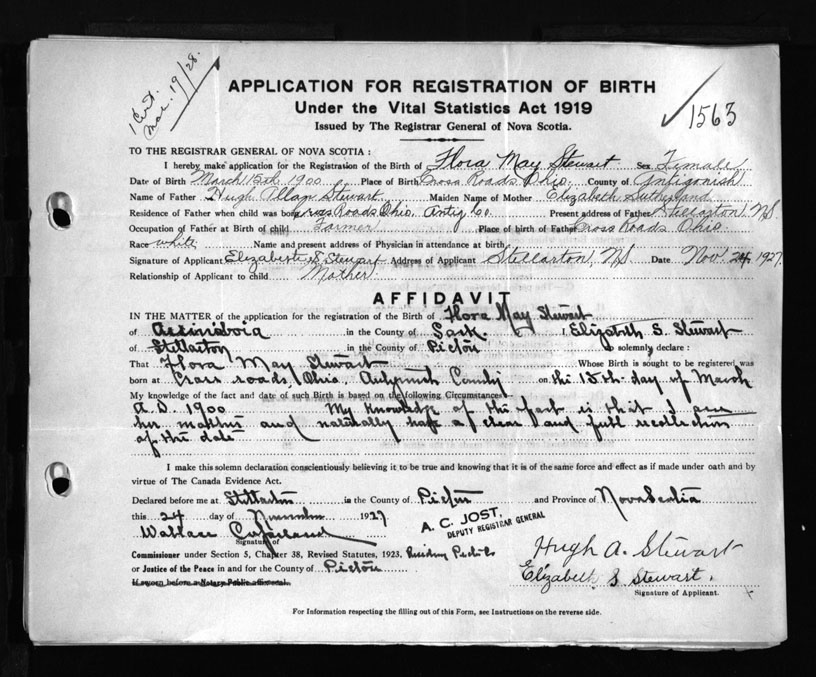 1 Cert.
Mar. 19/28.
APPLICATION FOR REGISTRATION OF BIRTH
Under the Vital Statistics Act 1919
Issued by The Registrar General of Nova Scotia.
1563
TO THE REGISTRAR GENERAL OF NOVA SCOTIA :
I hereby make application for the Registration of the Birth of Flora May Stewart Sex Female
Date of Birth March 15th 1900 Place of Birth Cross Roads Ohio. County of Antigonish
Name of Father Hugh Allan Stewart Maiden Name of Mother Elizabeth Sutherland
Residence of Father when child was born Cross Roads Ohio. Antig Co. Present address of Father Stellarton NS
Occupation of Father at Birth of child Farmer Place of birth of Father Cross Roads Ohio.
Race white Name and present address of Physician in attendance at birth
Signature of Applicant Elizabeth S Stewart Address of Applicant Stellarton, NS Date Nov. 24, 1927.
Relationship of Applicant to child Mother
AFFIDAVIT
IN THE MATTER of the application for the registration of the Birth of Flora May Stewart
of Assiniboia in the County of Sask. I, Elizabeth S. Stewart
of Stellarton in the County of Pictou do solemnly declare :
That Flora May Stewart Whose Birth is sought to be registered was
born at Cross roads, Ohio, County on the 15th day of March
My knowledge of the fact and date of such Birth is based on the following Circumstances
A.D. 1900 My Knowledge of the fact is that I am
her mother and naturally have a clear and full recollection
of the date
I make this solemn declaration conscientiously believing it to be true and knowing that it is of the same force and effect as if made under oath and by
virtue of The Canada Evidence Act.
Declared before me at Stellarton in the County of Pictou and Province of Nova Scotia
this 24 day of November 1927
A. C. JOST,
DEPUTY REGISTRAR GENERAL
Wallace Copeland
Signature of
Hugh A. Stewart
Commissioner under Section 5, Chapter 38, Revised Statutes, 1923.
Elizabeth S Stewart.
or Justice of the Peace in and for the County of Pictou
Signature of Applicant.
If sworn before a Notary Public affix seal.
For Information respecting the filling out of this Form, see Instructions on the reverse side.